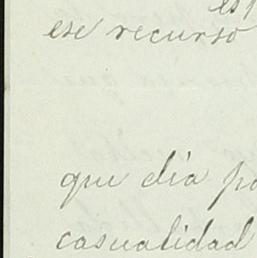 ese recurso
que dia
casualidad